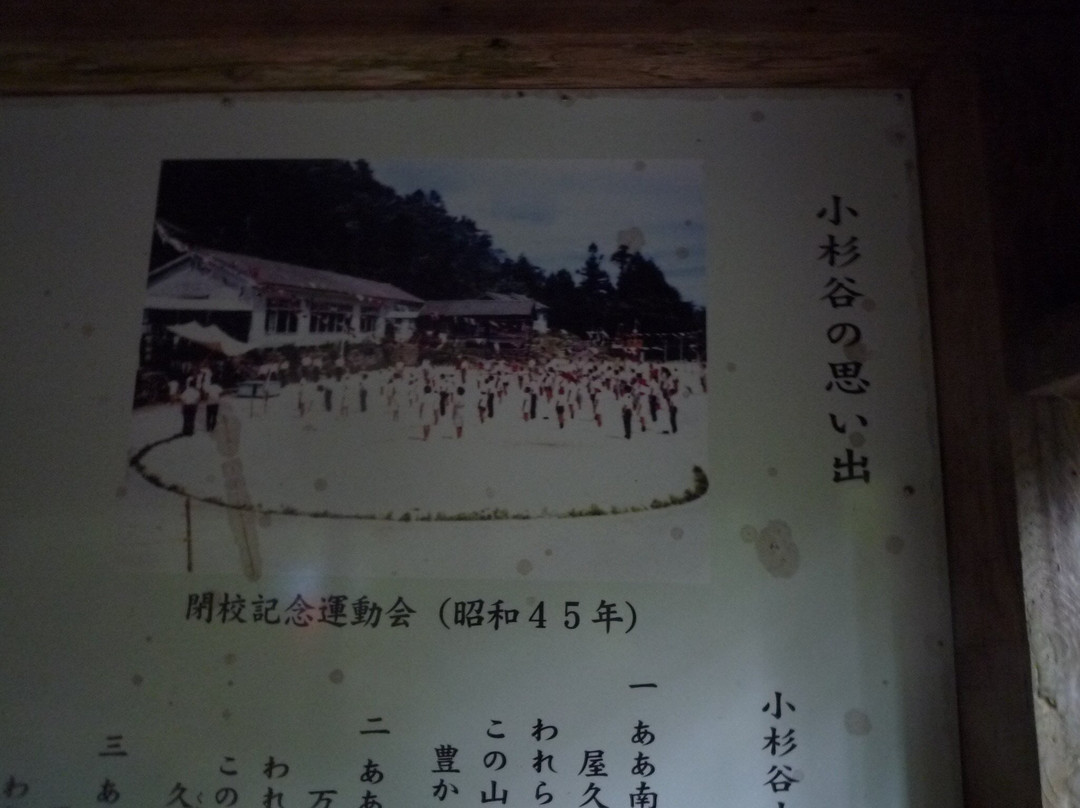 小杉谷の思い出
閉校記念運動会（昭和４５年）
小杉谷
一 ああ南
屋久
われら
この山
豊か
二 ああ
万
われ
この
久
三 あ
わ